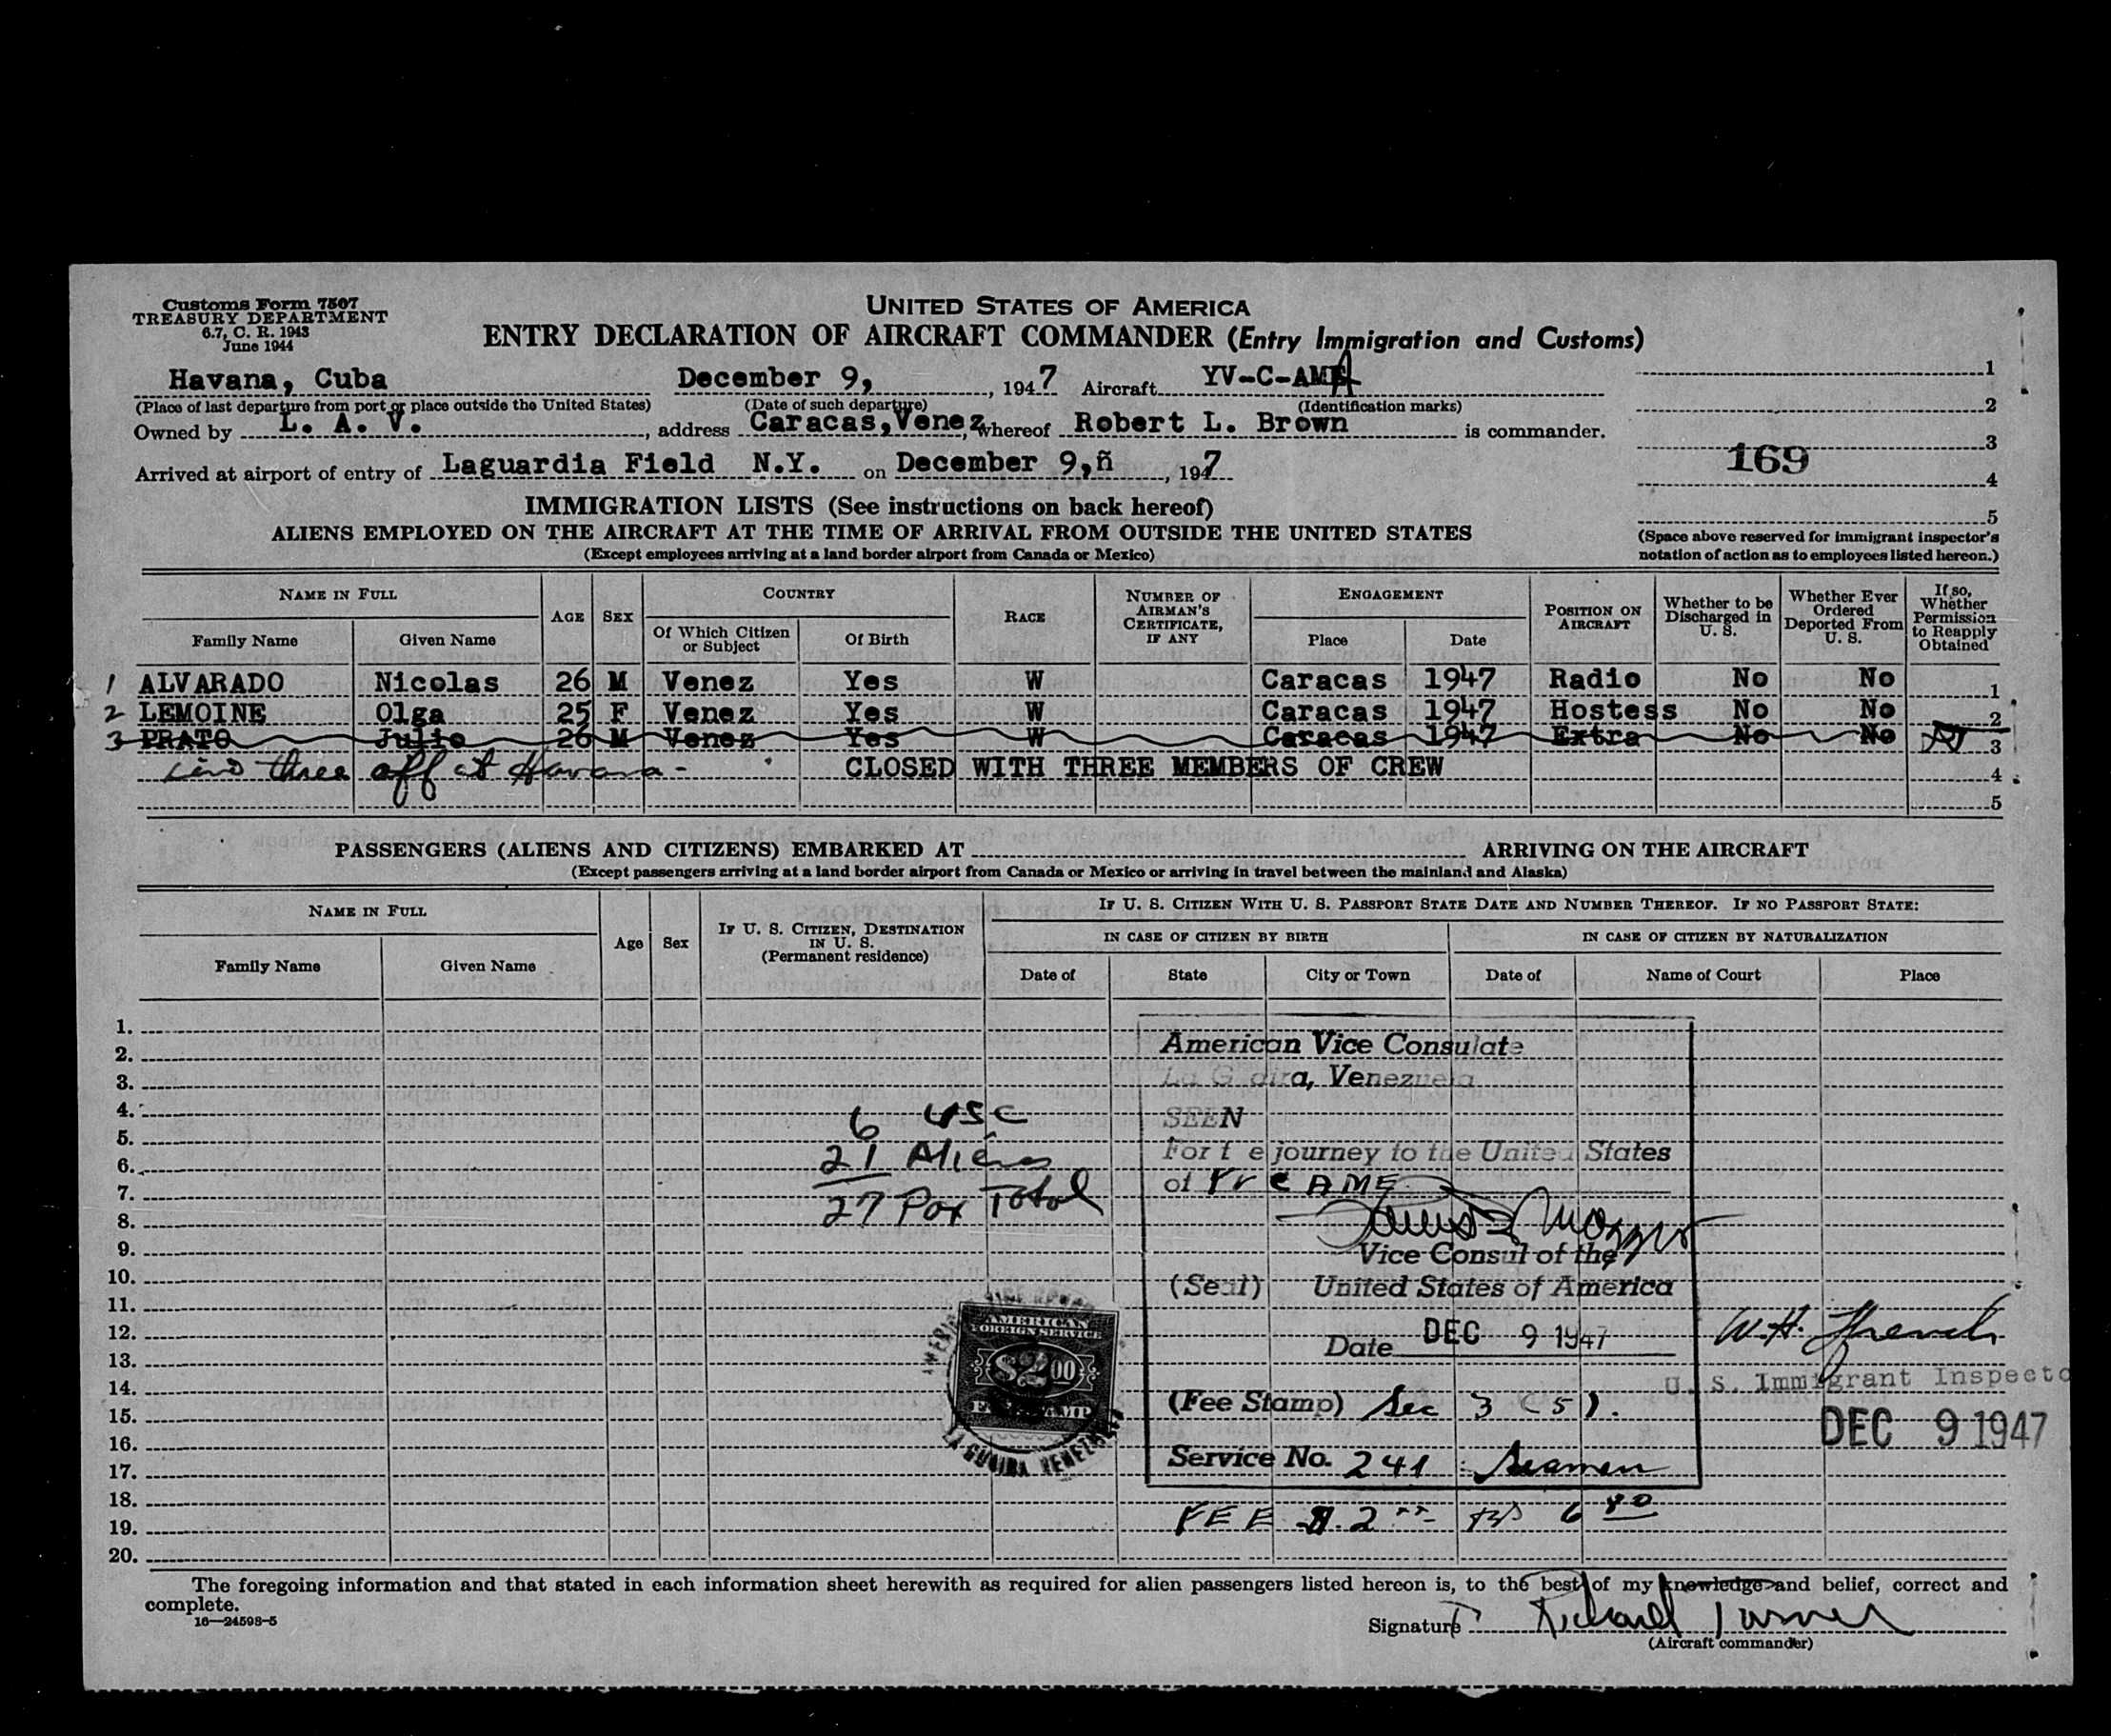 Customs Form 7507
TREASURY DEPARTMENT
6.7, C. R. 1943
June 1944
UNITED STATES OF AMERICA
ENTRY DECLARATION OF AIRCRAFT COMMANDER (Entry Immigration and Customs)
Havana, Cuba December 9, , 1947 Aircraft YV-C-AMA 1
(Place of last departure from port or place outside the United States) (Date of such departure) (Identification marks) 2
Owned by L. A. V. , address Caracas,Venez, whereof Robert L. Brown is commander.
3
169
Arrived at airport of entry of Laguardia Field N.Y. on December 9,ñ , 1947
4
IMMIGRATION LISTS (See instructions on back hereof)
5
ALIENS EMPLOYED ON THE AIRCRAFT AT THE TIME OF ARRIVAL FROM OUTSIDE THE UNITED STATES
(Except employees arriving at a land border airport from Canada or Mexico)
(Space above reserved for immigrant inspector's
notation of action as to employees listed hereon.)
NAME IN FULL
Family Name Given Name
AGE SEX
COUNTRY
Of Which Citizen
or Subject
Of Birth
RACE
NUMBER OF
AIRMAN'S
CERTIFICATE,
IF ANY
ENGAGEMENT
Place Date
POSITION ON
AIRCRAFT
Whether to be
Discharged in
U. S.
Whether Ever
Ordered
Deported From
U. S.
If so,
Whether
Permission
to Reapply
Obtained
1 ALVARADO Nicolas 26 M Venez Yes W Caracas 1947 Radio No No 1
2 LEMOINE Olga 25 F Venez Yes W Caracas 1947 Hostess No No 2
3 PRATO Julio 26 M Venez Yes W Caracas 1947 Extra No No 3
Line three off at Havana - CLOSED WITH THREE MEMBERS OF CREW 4
5
PASSENGERS (ALIENS AND CITIZENS) EMBARKED AT ARRIVING ON THE AIRCRAFT
(Except passengers arriving at a land border airport from Canada or Mexico or arriving in travel between the mainland and Alaska)
NAME IN FULL
Family Name Given Name
Age Sex
IF U. S. CITIZEN, DESTINATION
IN U. S.
(Permanent residence)
IF U. S. CITIZEN WITH U. S. PASSPORT STATE DATE AND NUMBER THEREOF. IF NO PASSPORT STATE:
IN CASE OF CITIZEN BY BIRTH IN CASE OF CITIZEN BY NATURALIZATION
Date of State City or Town Date of Name of Court Place
1.
2.
3.
4.
5.
6.
7.
8.
9.
10.
11.
12.
13.
14.
15.
16.
17.
18.
19.
20.
6 USC
21 Aliens
27 Pax Total
American Vice Consulate
La G aira, Venezuela
SEEN
For t e journey to the United States
of YV C AME
Vice Consul of the
(Seal) United States of America
Date DEC 9 1947
(Fee Stamp) Sec 3 (5).
Service No. 241 Seamen
FEE $. 2
AMERICAN
FOREIGN SERVICE
$2.00
FEE STAMP
LA GUAIRA VENEZUELA
W.H. French
U. S. Immigrant Inspecto
DEC 9 1947
The foregoing information and that stated in each information sheet herewith as required for alien passengers listed hereon is, to the best of my knowledge and belief, correct and
complete.
16—24598-5
Signature Richard Turner
(Aircraft commander)